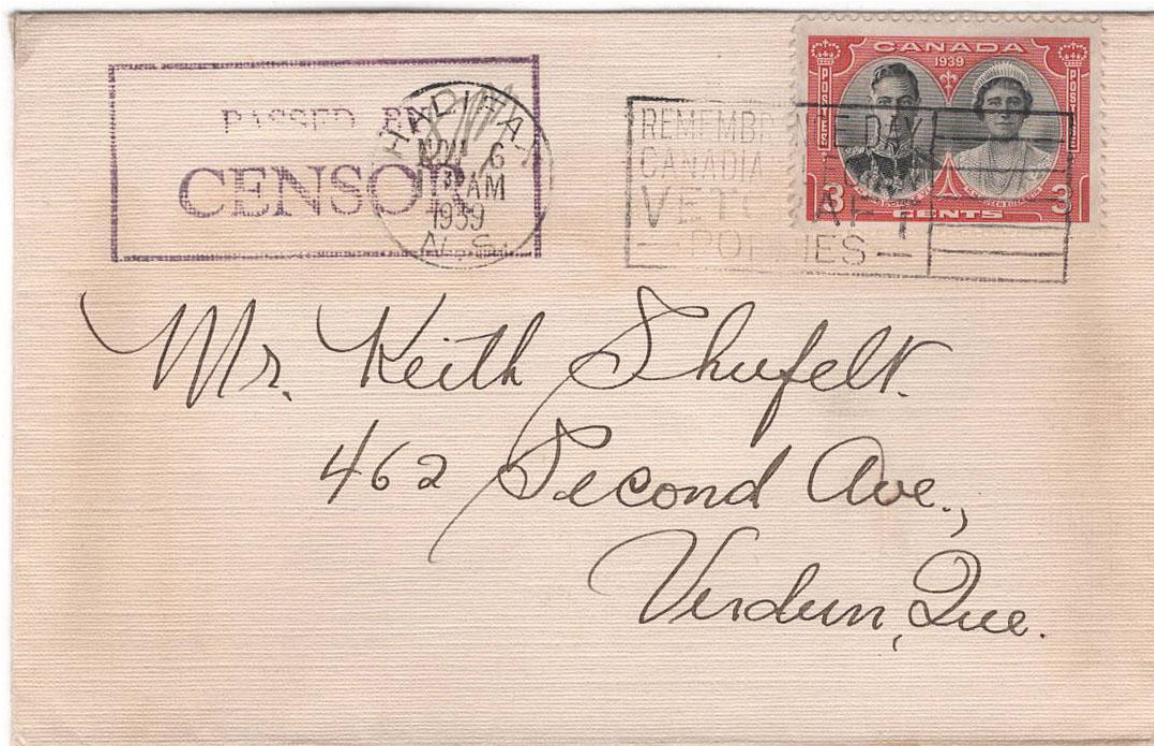 PASSED BY
CENSOR
HALIFAX
NOV 6
AM
1939
N.S.
REMEMBRANCE DAY
CANADIAN
VETCRAFT
— POPPIES —
CANADA
1939
POSTES POSTAGE
3 CENTS 3
Mr. Keith Shufelt.
462 Second Ave.,
Verdun, Que.